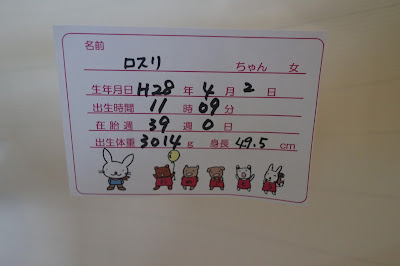 名前
ロスリ ちゃん 女
生年月日 H28 年 4 月 2 日
出生時間 11 時 09 分
在胎週 39 週 0 日
出生体重 3014 g 身長 49.5 cm